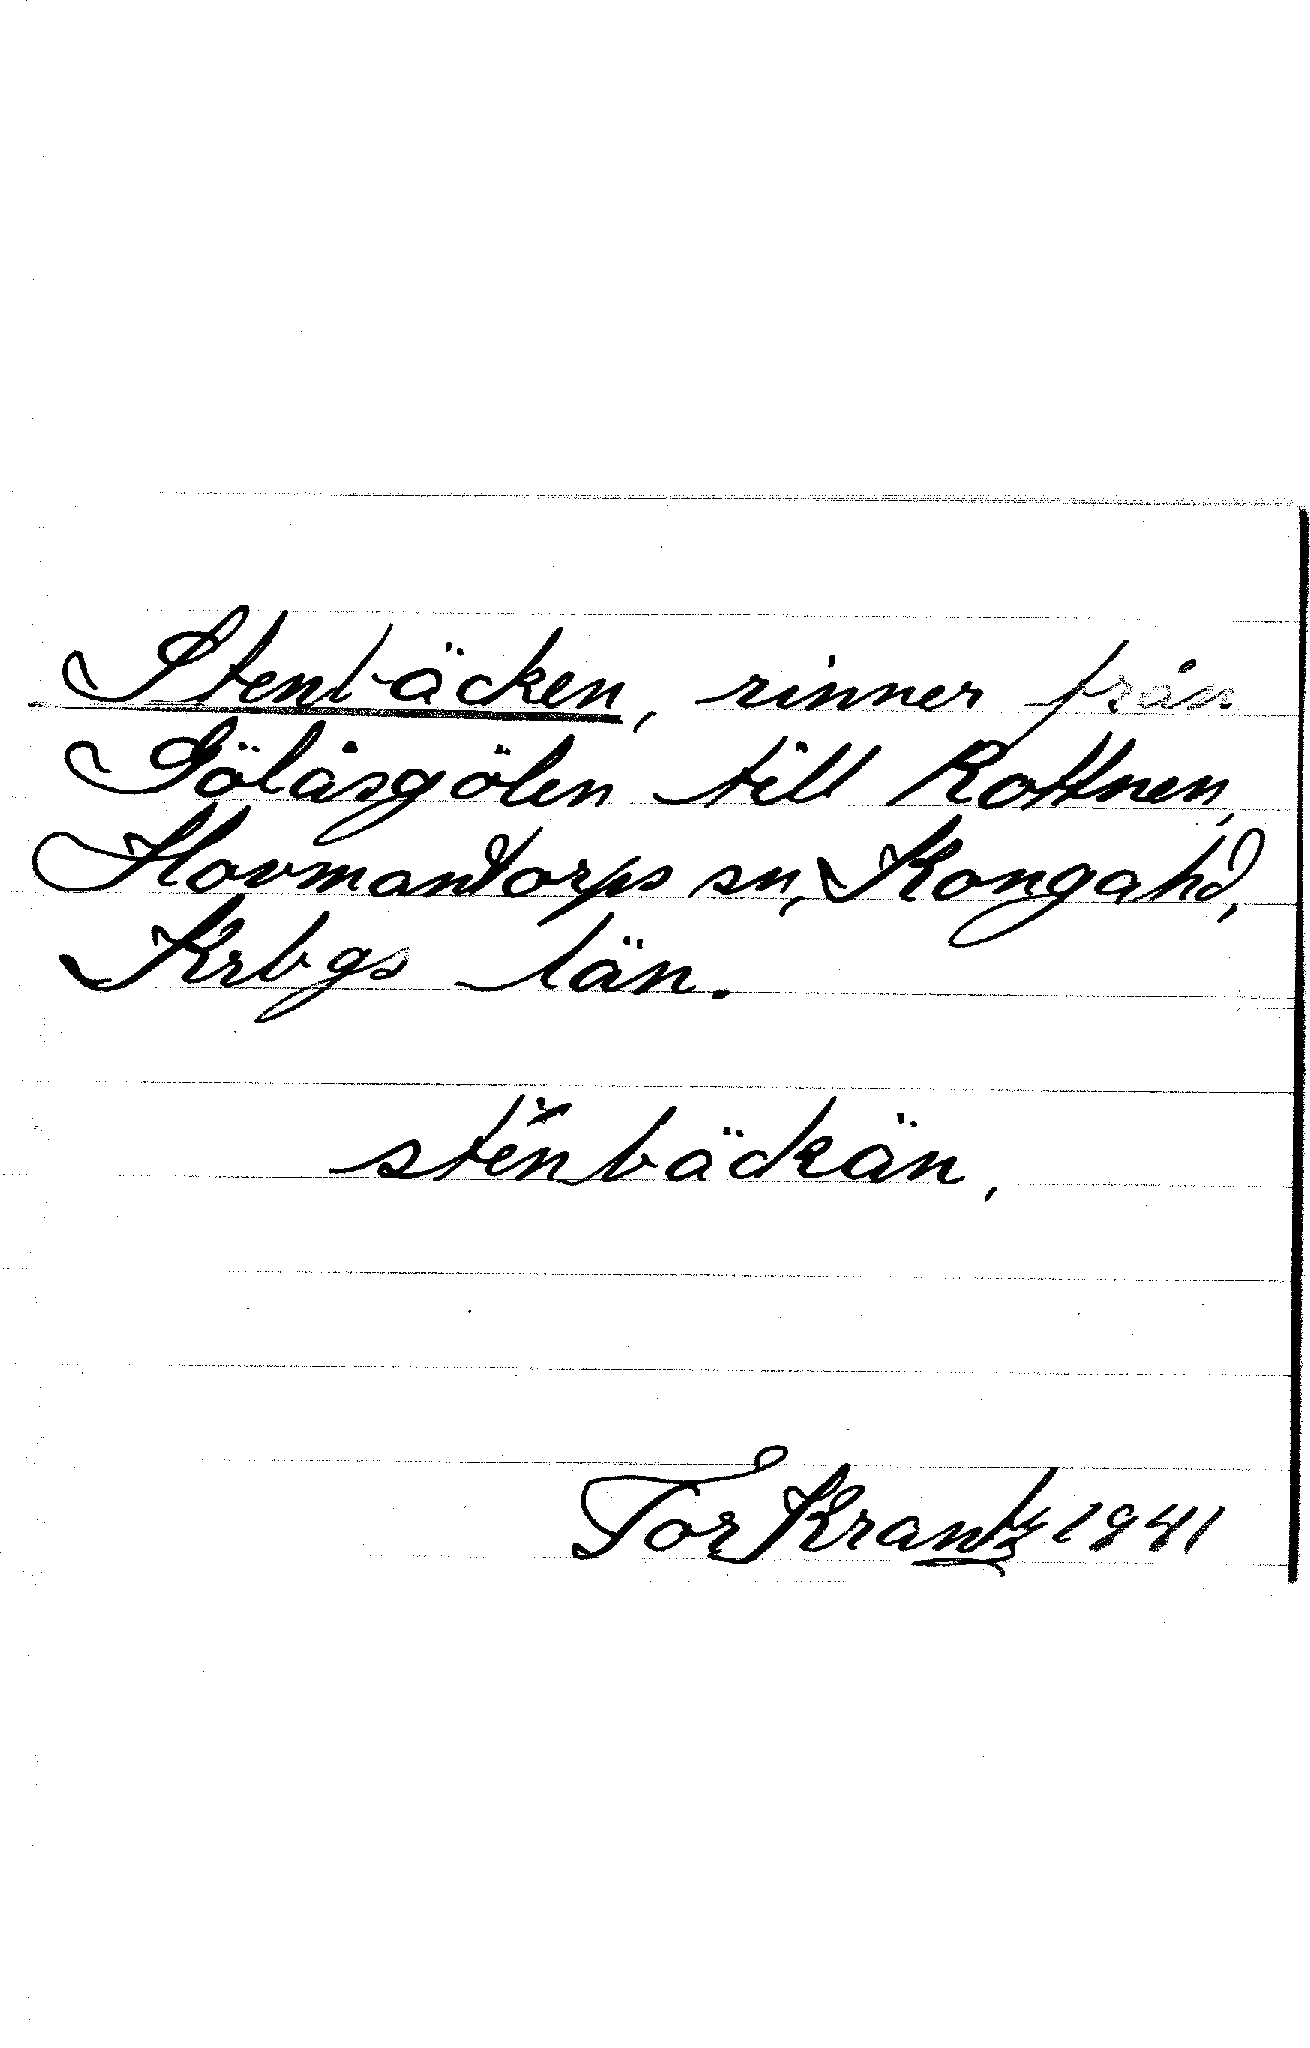 Stenbäcken, rinner från
Gölåsgölen till Rottnen,
Hovmantorps sn, Konga hd,
Krbgs län.
stenbäckän,
Tor Krantz 1941